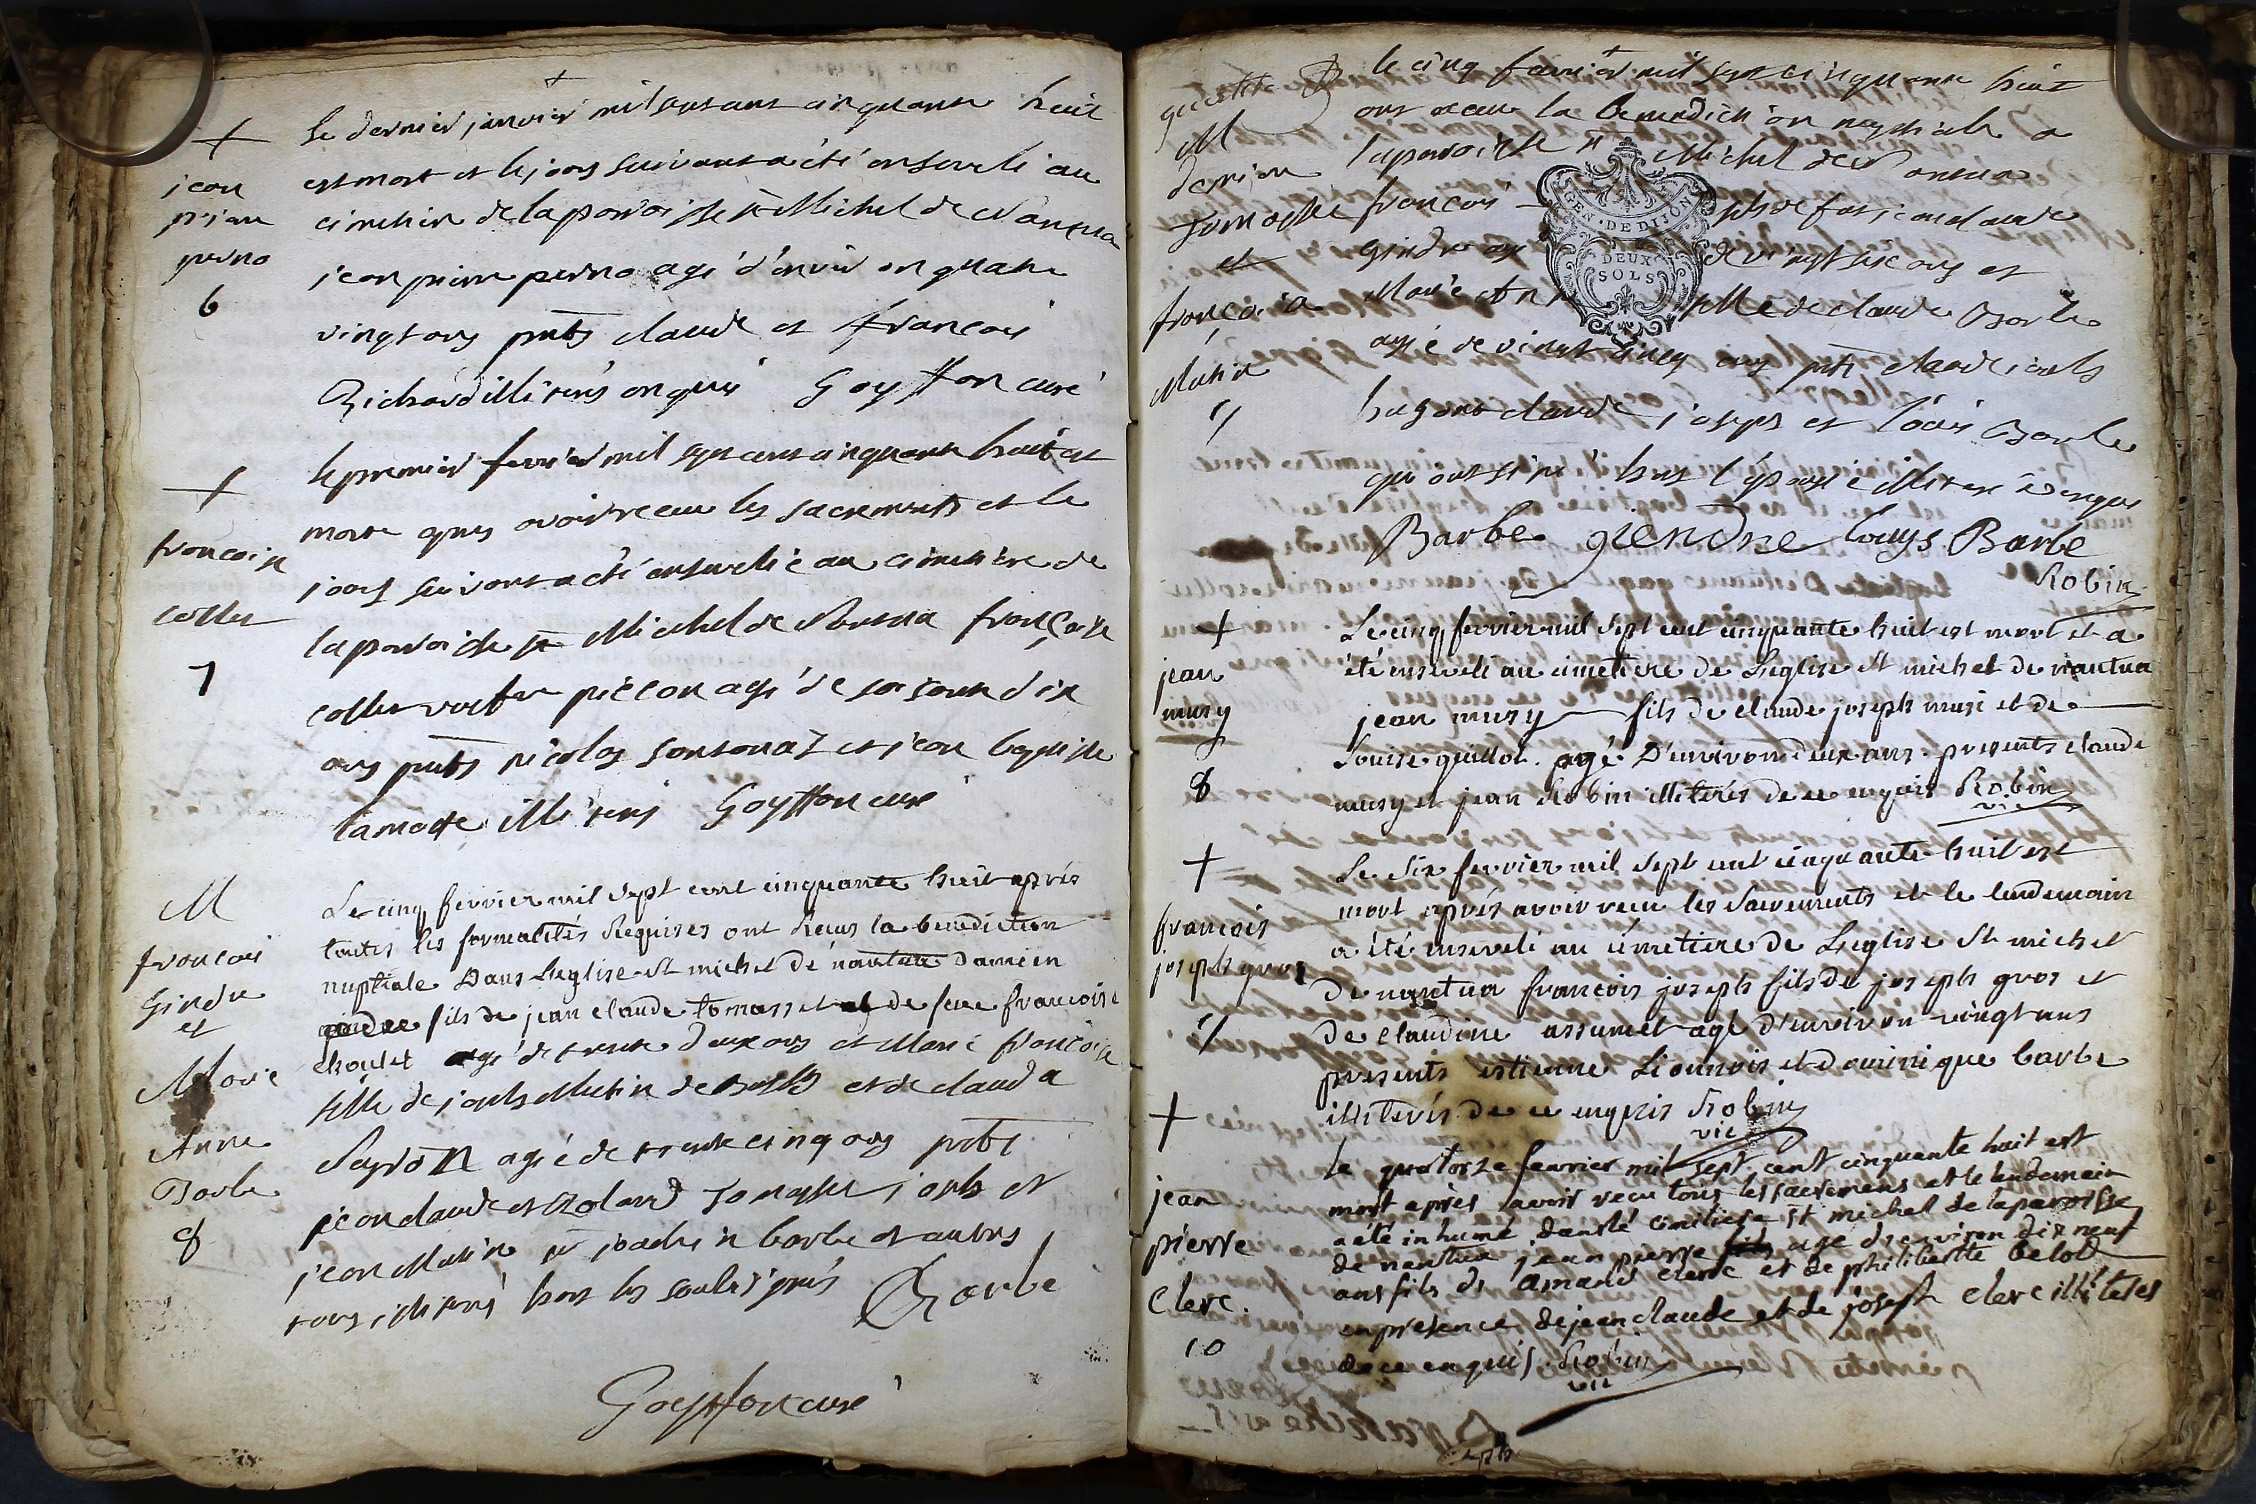 +
jean
pierre
perno
6
le dernier janvier mil sept cent cinquante huit
est mort et le jour suivant a été enseveli au
cimetiere de la paroisse st Michel de Nantua
jean pierre perno agé d'environ quatre
vingt ans pnts claude et françois
Richard illiterés enquis Goyffon curé
+
francoise
collet
7
le premier fevrier mil sept cent cinquante huit est
morte apres avoir receu les sacrements et le
jour suivant a été ensevelie au cimetiere de
la paroisse st Michel de Nantua françoise
collet agé de soisante dix
ans pnts nicolas sonsonaz et jean baptiste
lamotte illiterés Goyffon curé
M
francois
Gindre
et
Marie
Anne
Barbe
8
Le cinq fevrier mil sept cent cinquante huit aprés
toutes les formalités Requises ont Receus la benediction
nuptiale Dans L'eglise st michel de nantua Damien
fils de jean claude tomasset et de feue francoise
choulet agé de trente deux ans et Marie françoise
fille de joseph Mutin de et de clauda
agée de trente cinq ans pnts
jean claude et Roland Tomasset joseph et
jean Mutin joachin barbe et autres
tous illiterés hors les soulsignés Barbe
Goyffon curé
M
Damien
Tomasset
et
françoise
Mutin
9
le cinq fevrier mil sept cinquante huit
ont receu la benediction nuptiale a
la paroisse st Michel de Nantua
francois fils de feu jean claude
Gindre agé de vingt six ans et
Marie Anne fille de claude Barbe
agée de vingt cinq ans pnts claude joseph
hugon claude joseph et loüis Barbe
qui ont signé hors l'épouse illiterée enquis
GEN · DE DIJON
DEUX
SOLS
Barbe giendre louys Barbe
Robin
+
jean
musy
8
Le cinq fevrier mil sept cent cinquante huit est mort et a
été enseveli au cimetiere de L'eglise st michel de nantua
jean musy fils de claude joseph musi et de
Louise guillot agé D'environ deux ans presents claude
musy et jean Robin illiterés de ce enquis Robin
vic
+
francois
joseph gros
9
Le six fevrier mil sept cent cinquante huit est
mort aprés avoir receu les sacrements et le lendemain
a été enseveli au cimetiere de L'eglise st michel
de nantua francois joseph fils de joseph gros et
de claudine assumet agé d'environ vingt ans
presents estienne Lionnois et dominique barbe
illiterés de ce enquis Robin
vic
+
jean
pierre
Clerc.
10
le quatorze fevrier mil sept cent cinquante huit est
mort apres avoir recu tous les sacremens et le lendemain
a été inhumé dans le cimitiere st michel de la paroisse
de nantua jean pierre age d'environ dix neuf
ans fils de amand clerc et de philiberte belod
en presence de jean claude et de josept clerc illiteres
de ce enquis. Robin
vic